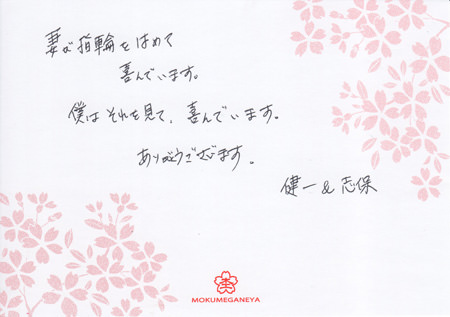 妻が指輪をはめて
喜んでいます。
僕はそれを見て、喜んでいます。
ありがとうございます。
健一&志保
MOKUMEGANEYA